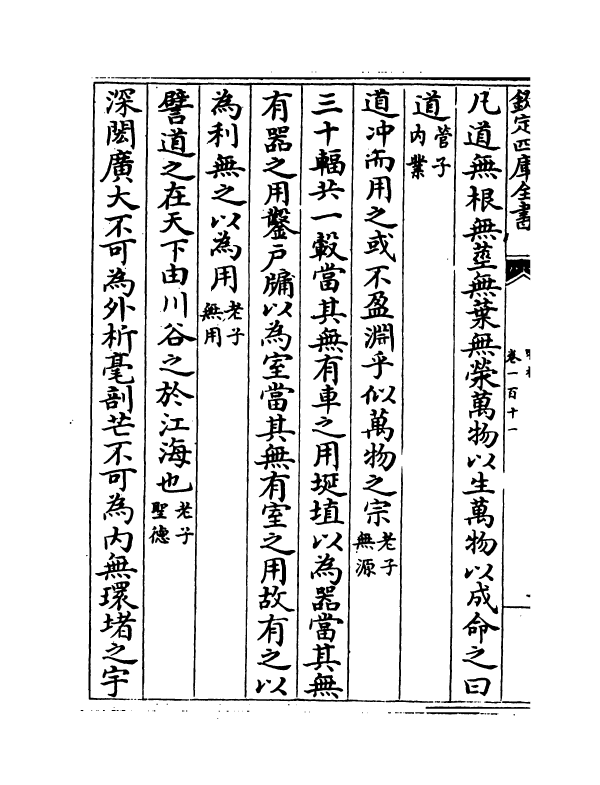 欽定四庫全書
卷一百十一
凡道無根無莖無葉無榮萬物以生萬物以成命之曰
道管子內業
道沖而用之或不盈淵乎似萬物之宗老子無源
三十輻共一轂當其無有車之用埏埴以為器當其無
有器之用鑿戶牖以為室當其無有室之用故有之以
為利無之以為用老子無用
譬道之在天下由川谷之於江海也老子聖德
深閎廣大不可為外析毫剖芒不可為内無環堵之宇